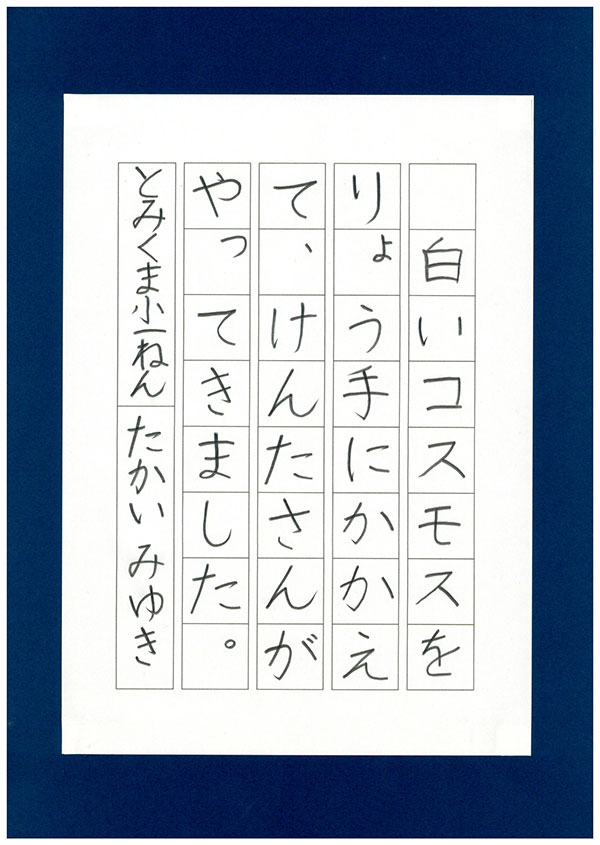 白いコスモスを
りょう手にかかえ
て、けんたさんが
やってきました。
とみくま小一ねん たかい みゆき